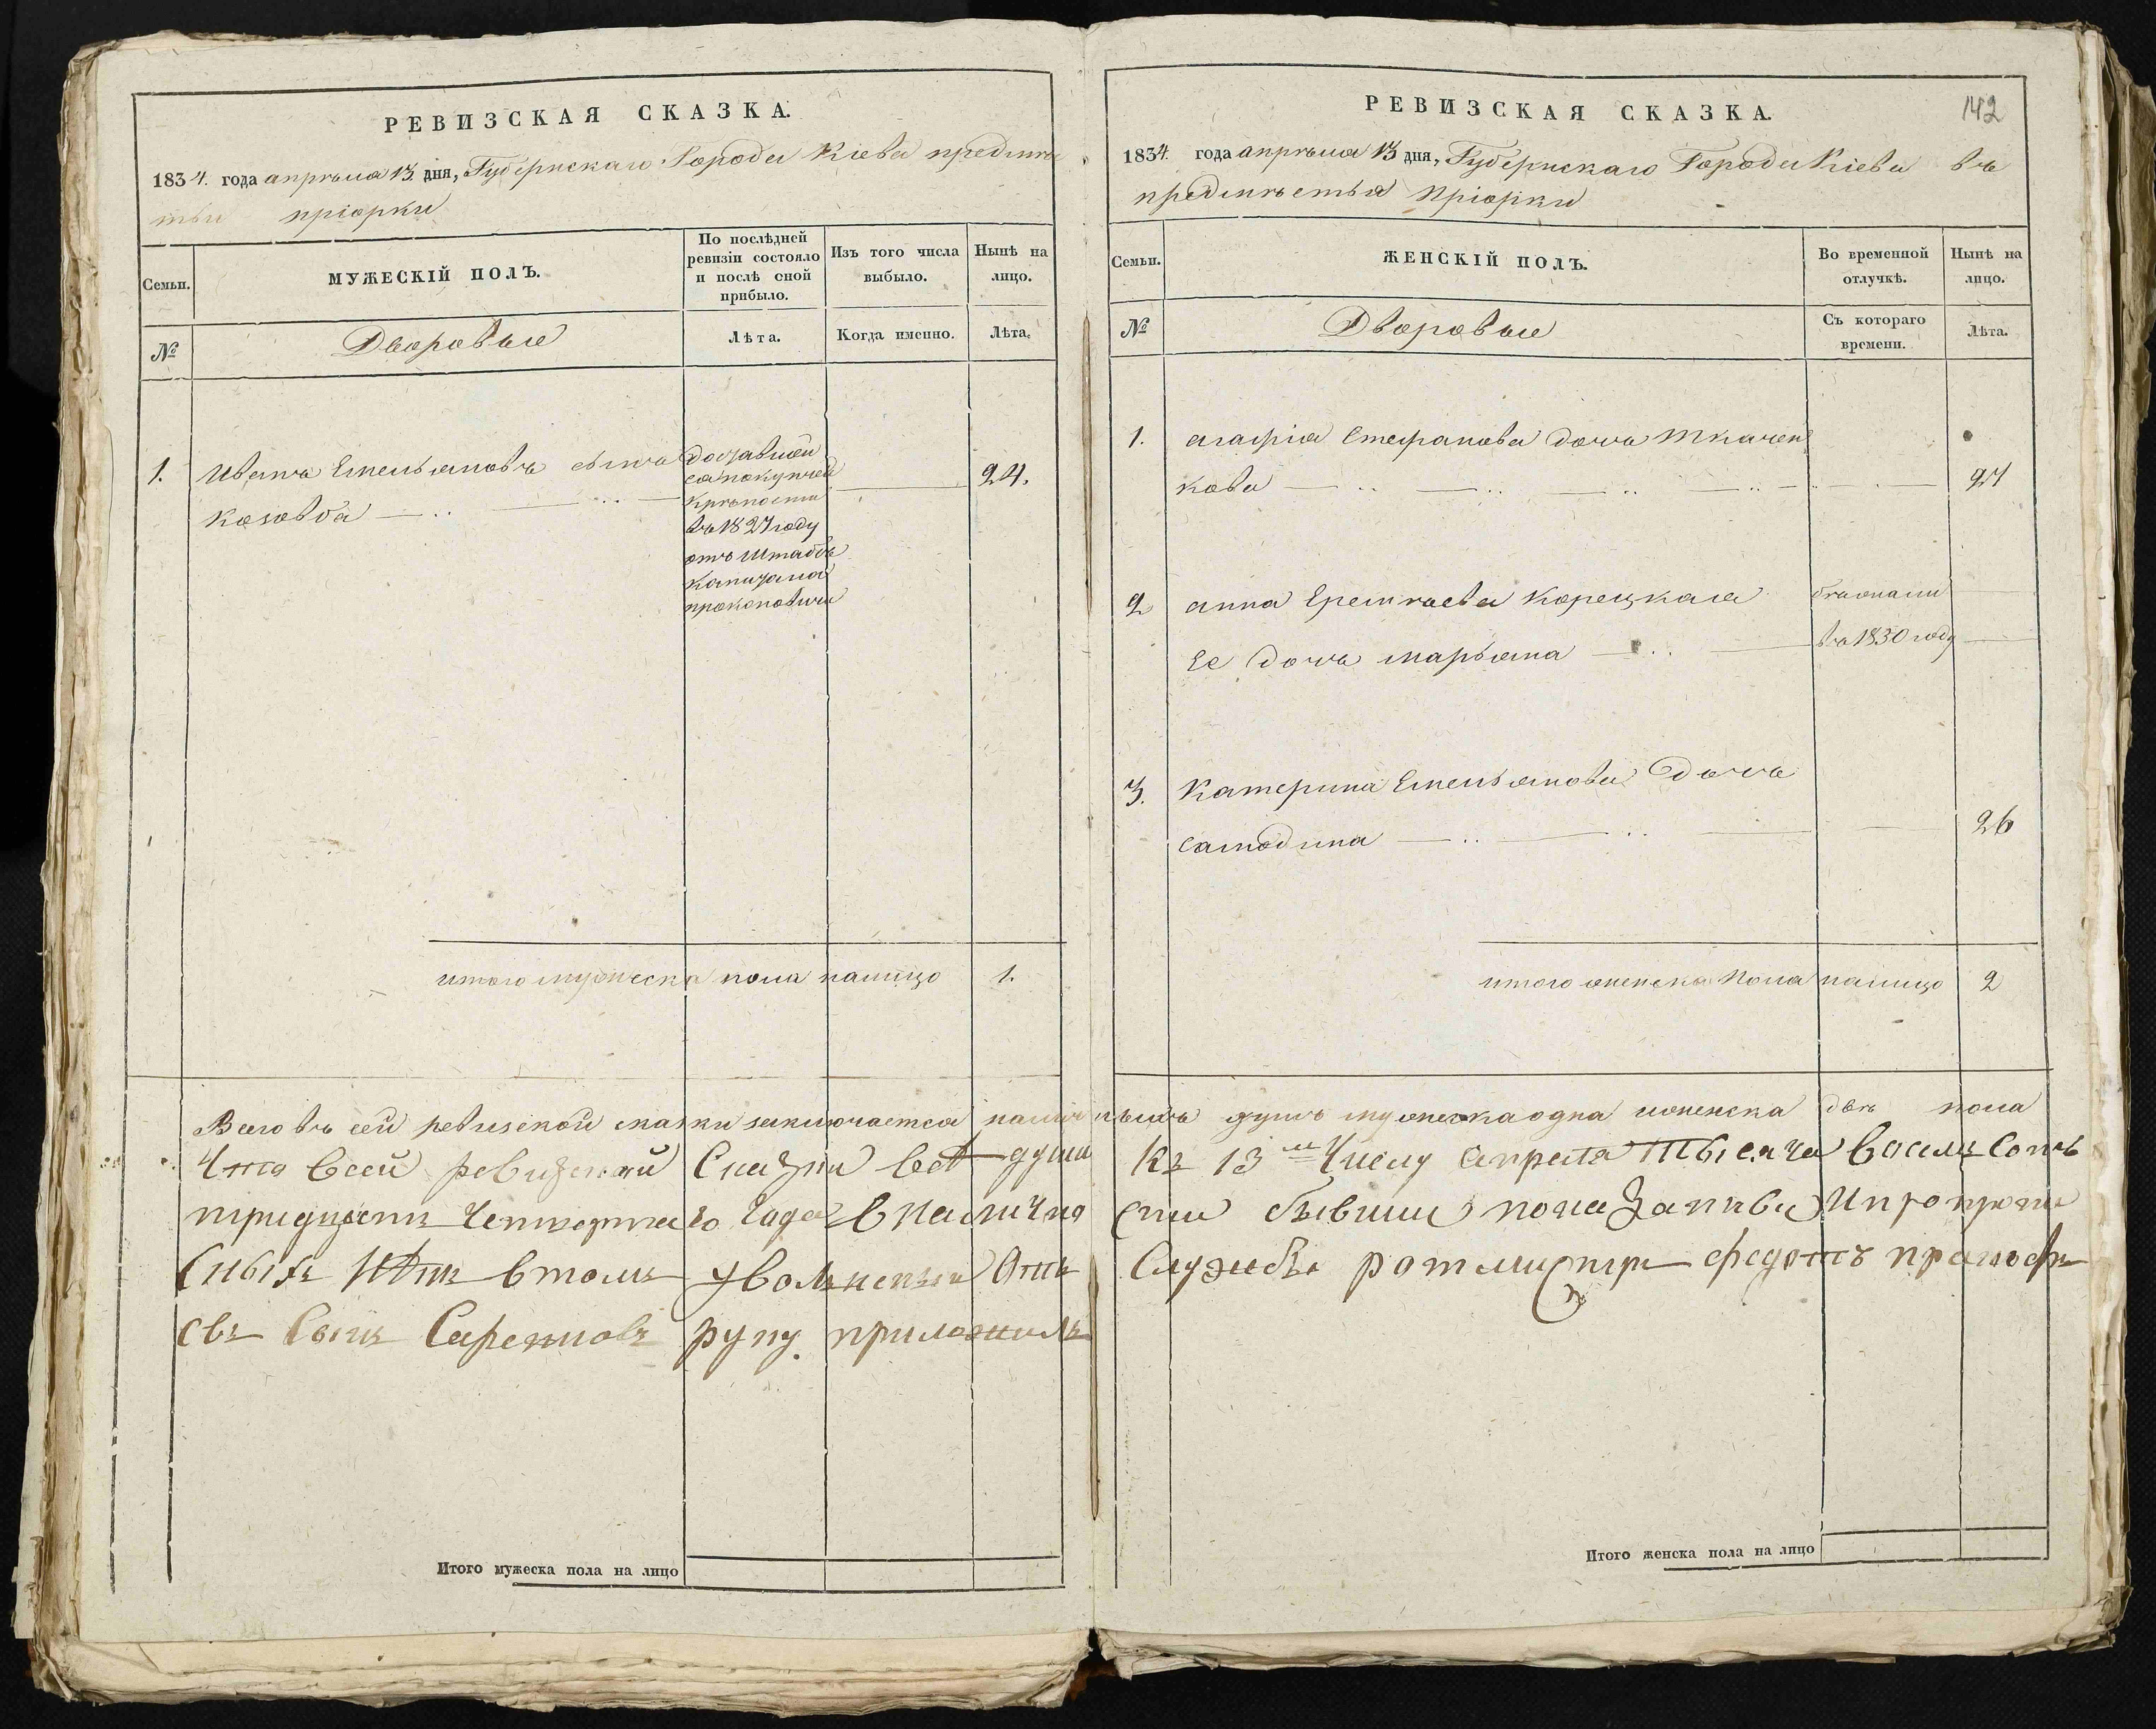 РЕВИЗСКАЯ СКАЗКА.
1834. года апрѣля 13 дня, Губернскаго Города Кіева предмѣ
стьи пріорки
Семьи.
МУЖЕСКІЙ ПОЛЪ.
По послѣдней
ревизіи состояло
и послѣ оной
прибыло.
Изъ того числа
выбыло.
Нынѣ на
лицо.
№
Дворовые
Лѣта.
Когда именно.
Лѣта.
1. Иванъ Емельяновъ сынъ
козовда
покупчей
крѣпости
въ 1827 году
отъ Штабсъ
Капитана
прокоповича
24.
итого мужеска пола налицо 1.
РЕВИЗСКАЯ СКАЗКА.
142
1834. года апрѣля 13 дня, Губернскаго Города Кіева въ
предмѣстья Пріорки
Семьи.
ЖЕНСКІЙ ПОЛЪ.
Во временной
отлучкѣ.
Нынѣ на
лицо.
№
Дворовые
Съ котораго
времени.
Лѣта.
1. агафія Стефанова дочь ткачен
кова 27
2 анна Еремѣева Корецкая бѣжали
Ее дочь марьяна въ 1830 году
3. Катерина Емельянова дочь
26
итого женска пола налицо 2
Всего въ сей ревизской сказки заключается наличныхъ душъ мужеска одна женска двѣ пола
Что всей ревизской Сказки всѣ души Къ 13 му Числу апреля тысяча восемь сотъ
тридцать Четвертаго Года в наличности бывши показаны и пропи
сныхъ нѣтъ втомъ уволенный отъ Службы ротмистр федотъ
сынъ руку приложилъ
Итого мужеска пола на лицо
Итого женска пола на лицо